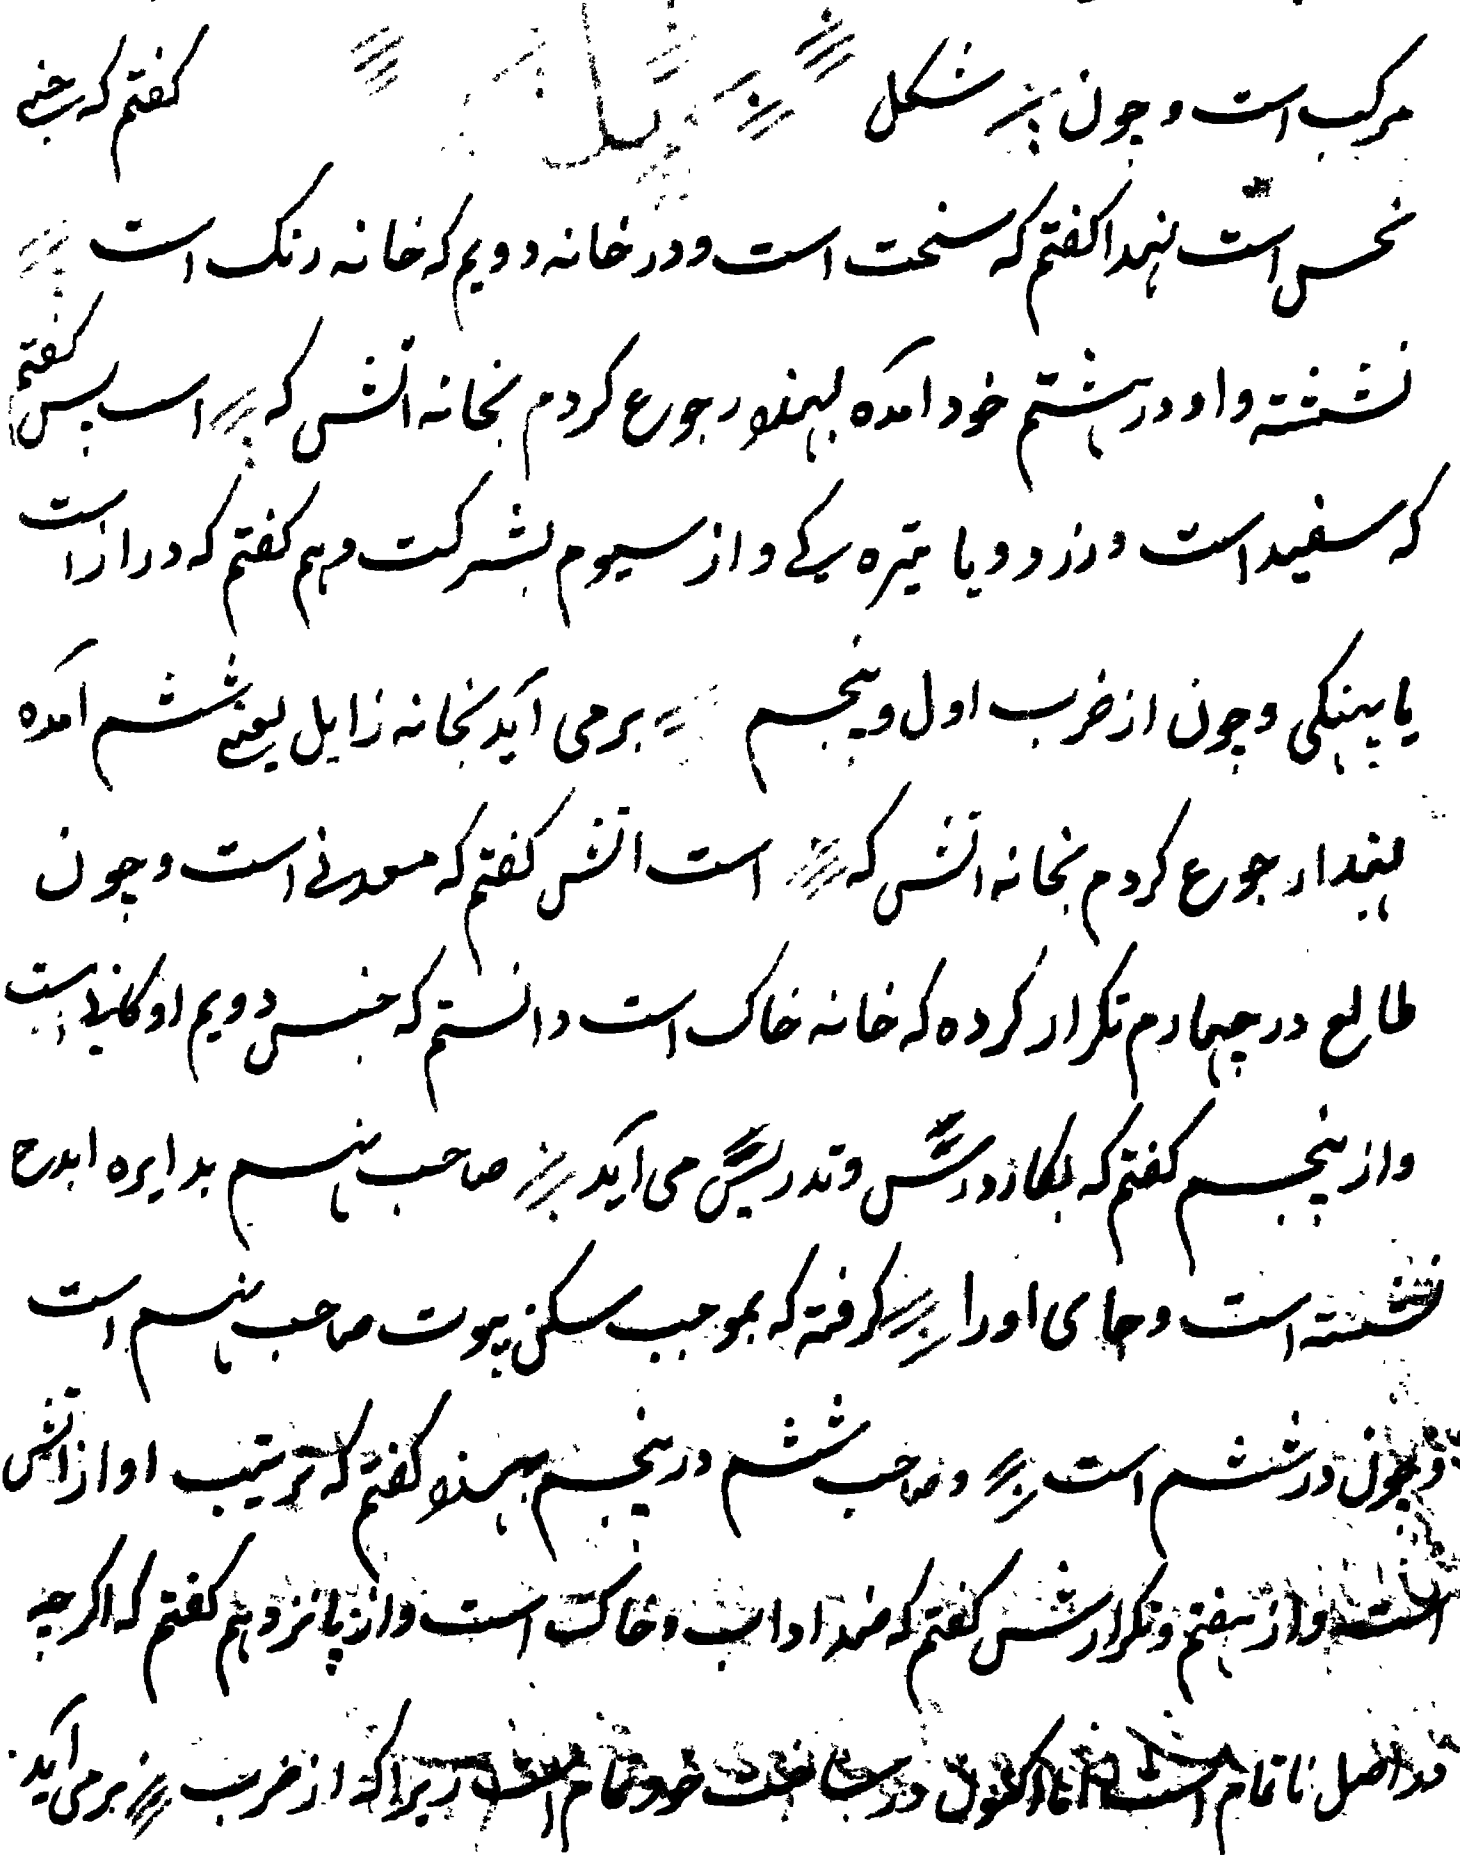 مرکب است و چون شکل کفتم که سختی
نحس است لهذا کفتم که سخت است و در خانه دویم که خانه رنک است
نشسته و او در هشتم خود امده لهذا رجوع کردم بخانه اتش که است پس کفتم
که سفید است و زرد و یا تیره یکی و از سیوم بشرکت دهم کفتم که دراز است
یا پهنکی و چون از ضرب اول و پنجم برمی آید بخانه زایل یعنی ششم امده
لهذا رجوع کردم بخانه اتش که است اتش کفتم که معدنی است و چون
طالع در چهارم تکرار کرده که خانه خاک است دانستم که جنس دویم او کانی است
و از پنجم کفتم که بکار درش و تدریس می آید صاحب نهم بدایره ابدح
نشسته است و جای او را کرفته که بموجب سکن بیوت صاحب نهم است
و چون در ششم است و صاحب ششم در پنجم لهذا کفتم که ترتیب او از اتش
است و از هفتم و تکرارش کفتم که ضد او اب و خاک است و از پانزدهم کفتم که اکرچه
در اصل ناتمام است اما اکنون در ساخت خود تمام است زیرا که از ضرب برمی آید